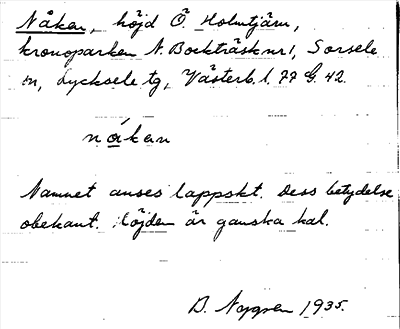 Nåken, höjd Ö. Holmtjärn,
kronoparken N. Bocktrásk nr 1, Sorsele
sn, Lycksele tg, Västerb. l. 77 G. 42.
nåkan
Namnet anses lappskt. Dess betydelse
obekant. Höjden är ganska kal.
D. 1935.